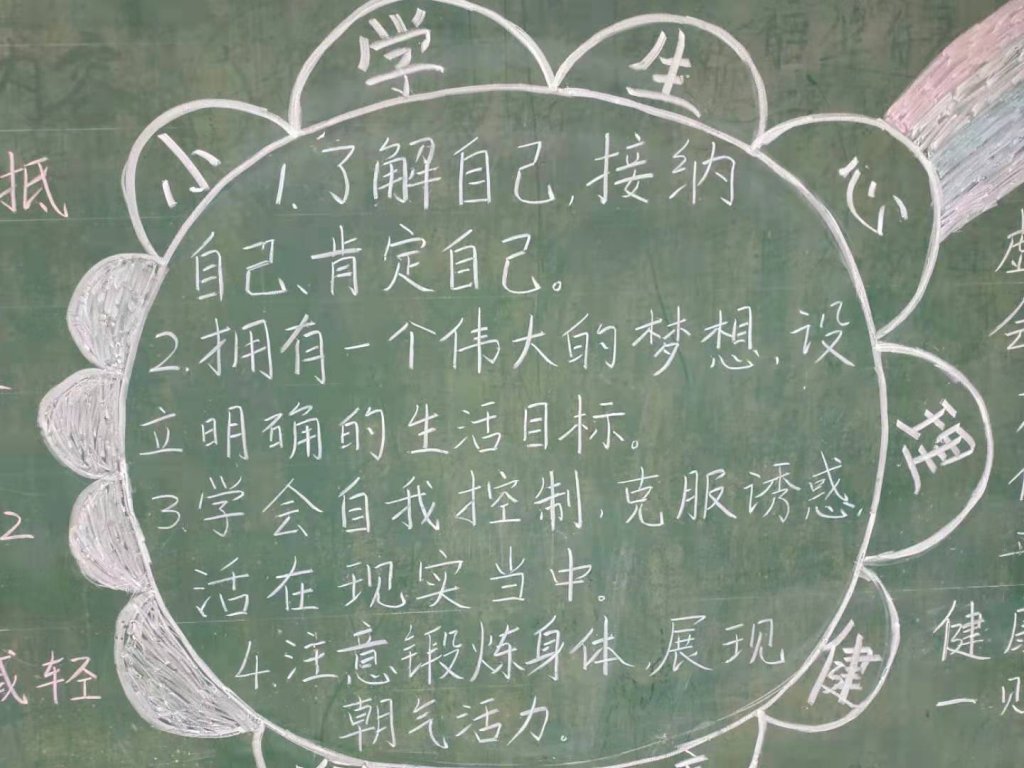 小学生心理健
1.了解自己,接纳
自己、肯定自己。
2.拥有一个伟大的梦想,设
立明确的生活目标。
3.学会自我控制,克服诱惑,
活在现实当中。
4.注意锻炼身体,展现
朝气活力。
抵
2
减轻
虚
会
健康
一